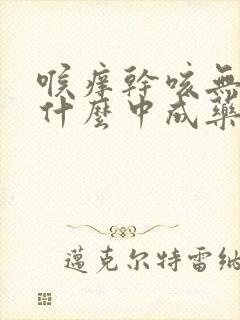 喉痒幹咳無
什麼中成藥
邁克尔特雷納